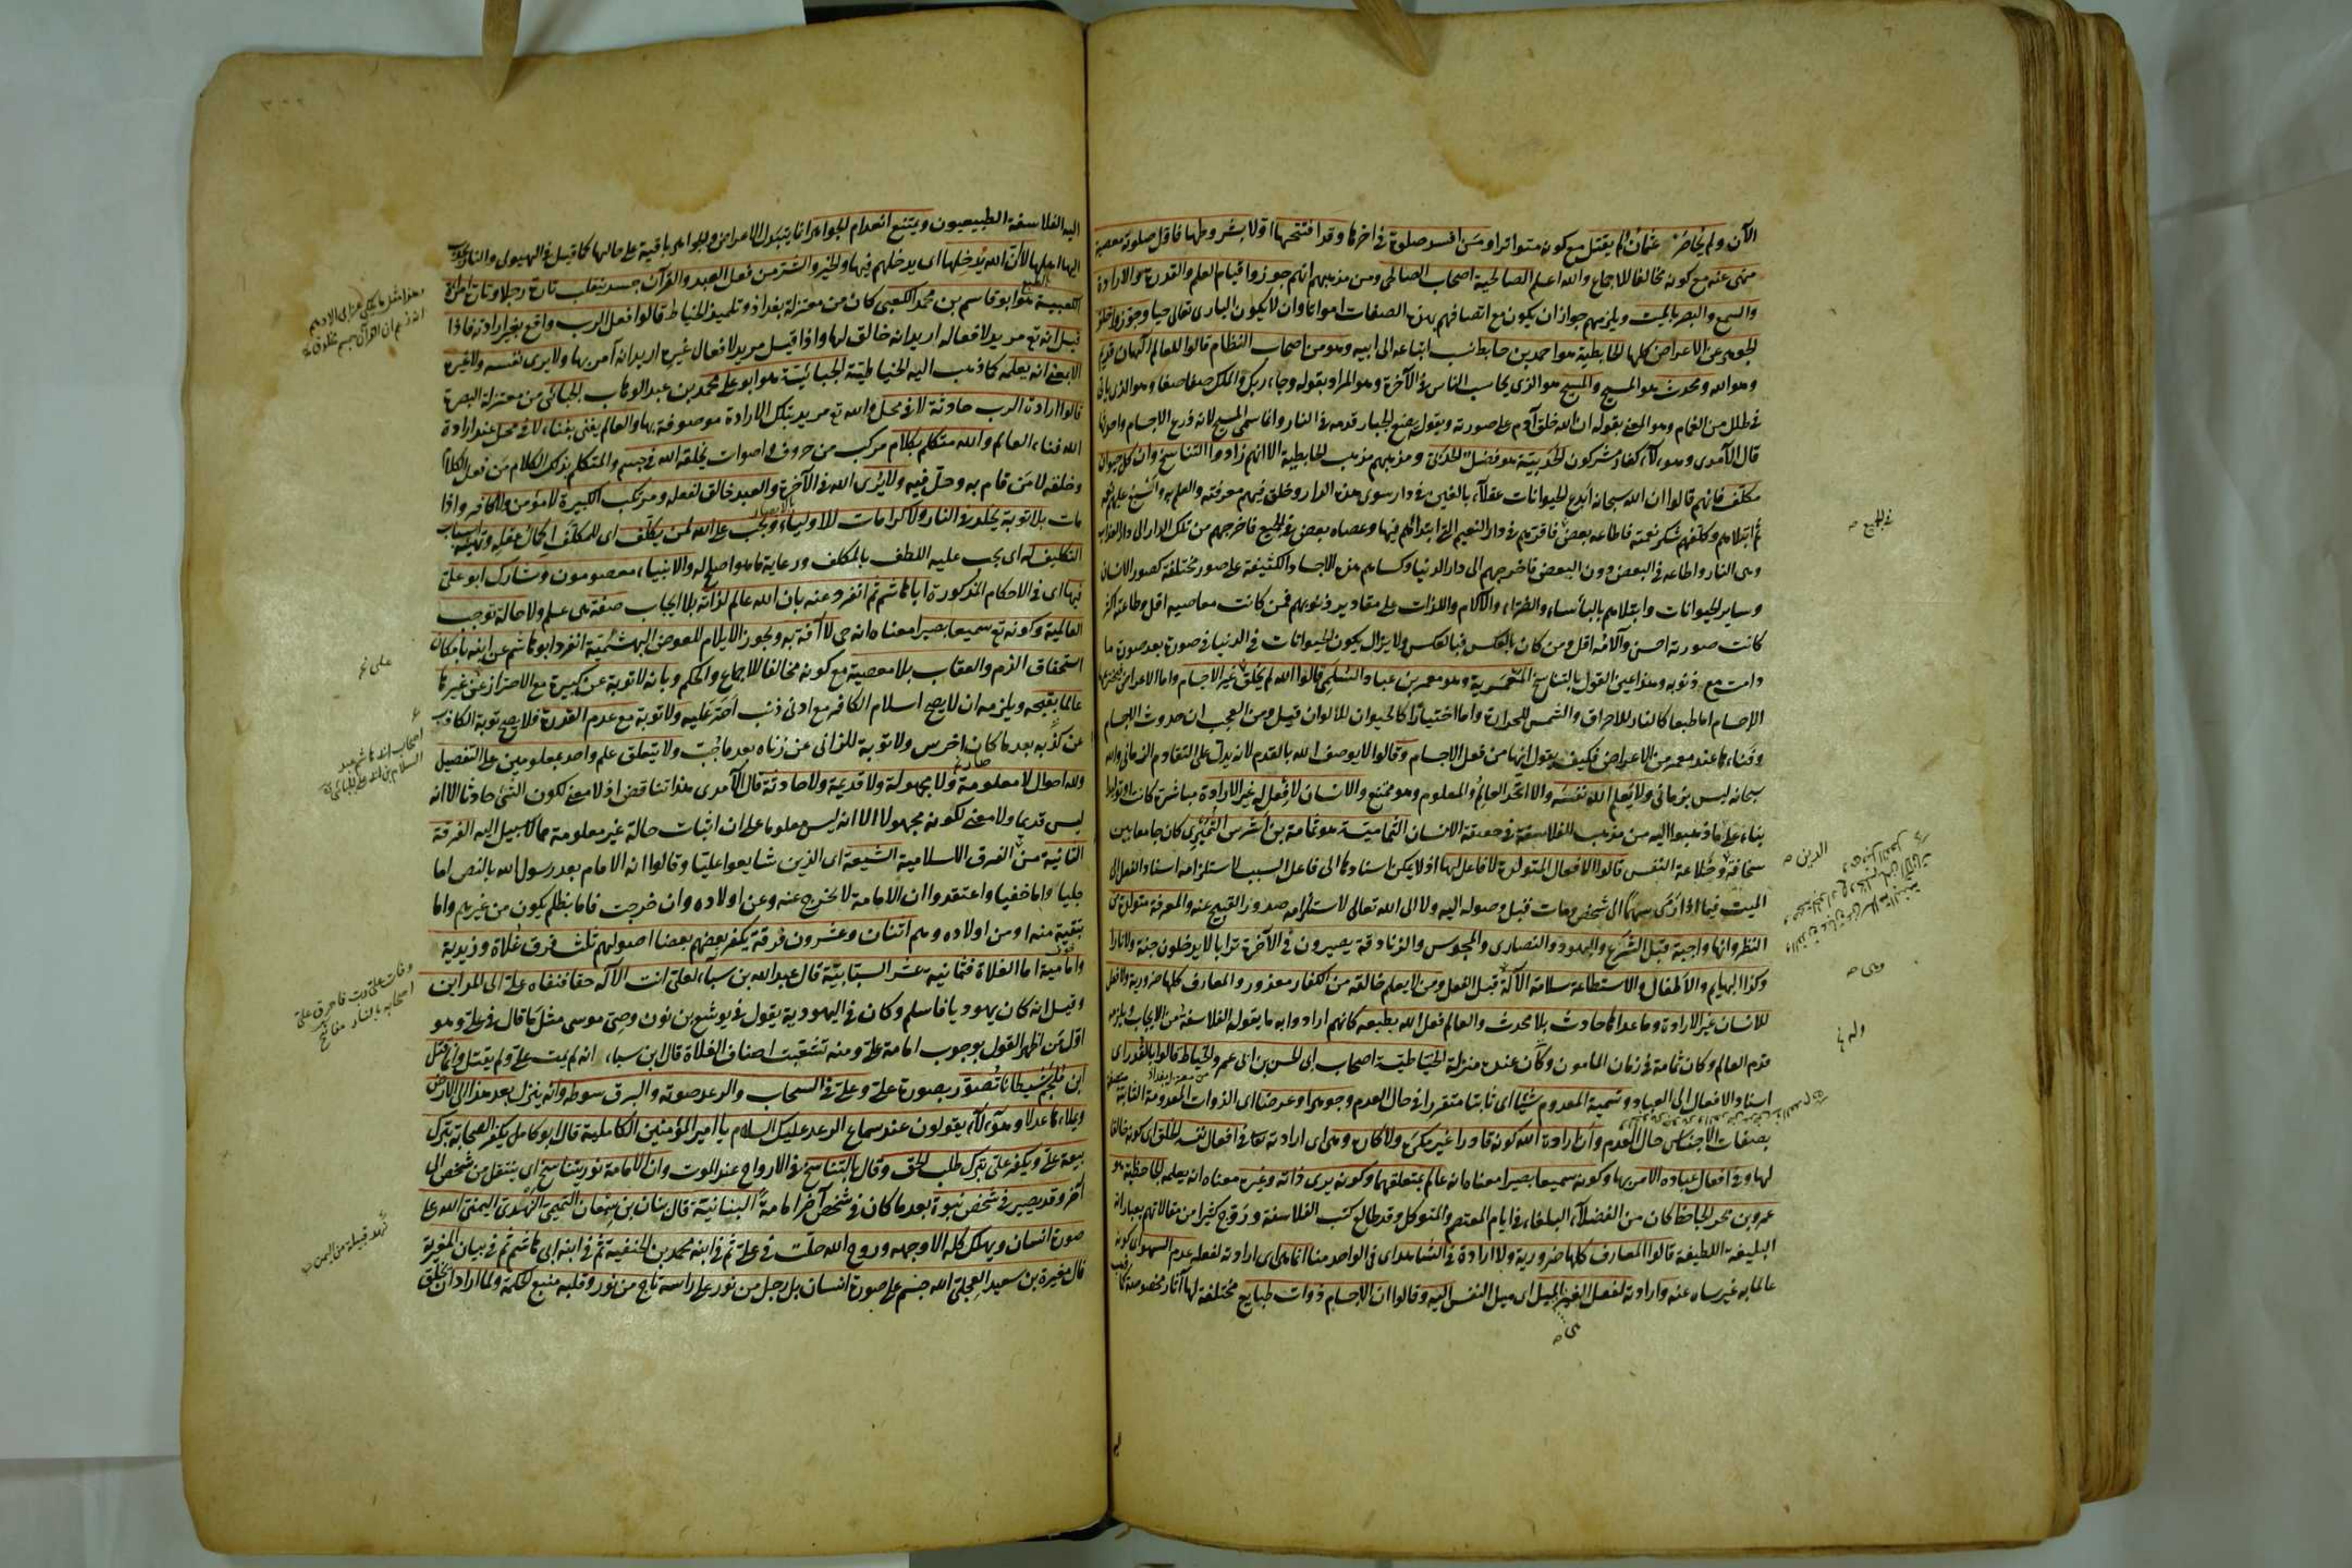 الآن ولم يحاضر عثمان ولم يقتل مع كونه متواترا ومن افسد صلوة فى اخرها وقد افتتحها اوّلا بشروطها فاوّل صلوته معصية
منهى عنه مع كونه مخالفا للاجماع والله اعلم الصالحية اصحاب الصالحى ومن مذهبهم انهم جوزوا قيام العلم والقدرة والارادة
والسمع والبصر بالميت ويلزمهم جواز ان يكون مع اتصافهم بهذه الصفات امواتا وان لا يكون البارى تعالى حيا وجوزوا خلو
الجوهر عن الاعراض كلها الحابطية هو احمد بن حابط نسب اتباعه الى ابيه وهو من اصحاب النظام قالوا للعالم الٓهان قديم
وهو الله ومحدث هو المسيح والمسيح هو الذى يحاسب الناس فى الآخرة وهو المراد بقوله وجاء ربك والملك صفا صفا وهو الذى ياتى
فى ظلل من الغمام وهو المعنى بقوله ان الله خلق آدم على صورته وبقوله يضع الجبار قدمه فى النار وانما سمى المسيح لانه ذرع الاجسام واحدثها
قال الآمدى وهولآء كفار مشركون الحدبيّة هو فضل الحدثى ومذهبهم مذهب الحابطية الا انهم زادوا التناسخ وان كل حيوان
مكلّف فانهم قالوا ان الله سبحانه ابدع الحيوانات عقلآء بالغين فى دار سوى هذه الدار وخلق فيهم معرفته والعلم به واسبغ عليهم نعمه
ثم ابتلاهم وكلفهم شكر نعمته فاطاعه بعض فاقرّهم فى دار النعيم التى ابتدأهم فيها وعصاه بعض فى الجميع فاخرجهم من تلك الدار الى دار العذاب
وهى النار واطاعه فى البعض دون البعض فاخرجهم الى دار الدنيا وكساهم هذه الاجساد الكثيفة على صور مختلفة كصورة الانسان
وساير الحيوانات وابتلاهم بالبأساء والضراء والآلام واللذات على مقادير ذنوبهم فمن كانت معاصيه اقل وطاعته اكثر
كانت صورته احسن وآلامه اقل ومن كان بالعكس فبالعكس ولا يزال يكون الحيوانات فى الدنيا فى صورة بعد صورة ما
دامت مع ذنوبه وهذا عين القول بالتناسخ المعمّرية وهو معمر بن عباد السُلَمى قالوا الله لم يخلق غير الاجسام واما الاعراض فيخترعها
الاجسام اما طبعا كالنار للاحراق والشمس للحرارة واما اختيارًا كالحيوان للالوان قيل ومن العجب ان حدوث الاجسام
وفناءها عند معمر من الاعراض فكيف يقول انها من فعل الاجسام وقالوا لا يوصف الله بالقدم لانه يدلّ على التقادم الزمانى والله
سبحانه ليس بزمانى ولا يعلم الله نفسه والا اتحد العالِم والمعلوم وهو ممتنع والانسان لا فعل له غير الارادة مباشرة كانت او توليدا
بناء على ما ذهبوا اليه من مذهب الفلاسفة فى حقيقة الانسان الثمامية هو ثمامة بن اشرس النُمَيْرى كان جامعا بين
سخافة وخلاعة النفس قالوا الافعال المتولدة لا فاعل لها اذ لا يمكن اسنادها الى فاعل السبب لاستلزامه اسناد الفعل الى
الميت فيما اذا رمى سهما الى شخص ومات قبل وصوله اليه ولا الى الله تعالى لاستلزامه صدور القبيح عنه والمعرفة متولدة من
النظر وانها واجبة قبل الشرع واليهود والنصارى والمجوس والزنادقة يصيرون فى الآخرة ترابا لا يدخلون جنة ولا نارا
وكذا البهايم والاطفال والاستطاعة سلامة الآلة قبل الفعل ومن لا يعلم خالقه من الكفار معذور والمعارف كلها ضرورية ولا فعل
للانسان غير الارادة وما عداها حادث بلا محدث والعالم فعل الله بطبعه كانهم ارادوا به ما يقوله الفلاسفة من الايجاب ويلزمه
قدم العالم وكان ثمامة فى زمان المامون وكان عنده منزلة الخيّاطيّة اصحاب ابى الحسن بن ابى عمرو الخياط قالوا بالقدر اى
اسناد الافعال الى العباد وتسمية المعدوم شيئا اى ثابتا متقررا فى حال العدم وجوهرا وعرضا اى الذوات المعدومة الثابتة
بصفات الاجناس حال العدم وان ارادة الله كونه قادرا غير مكره ولا كاره وهى اى ارادته تعالى فى افعال نفسه الخلق اى كونه خالقا
لها وفى افعال عباده الامر بها وكونه سميعا بصيرا معناه انه عالم بمتعلقهما وكونه يرى ذاته وغيره معناه انه يعلمه الجاحظية هو
عمرو بن بحر الجاحظ كان من الفضلآء البلغاء فى ايام المعتصم والمتوكل وقد طالع كتب الفلاسفة وروّج كثيرا من مقالاتهم بعباراته
البليغة اللطيفة قالوا المعارف كلها ضرورية ولا ارادة فى الشاهد اى فى الواحد منا انما هى اى ارادته لفعله عدم السهو اى كونه
عالما به غير ساه عنه وارادته لفعل الغير الميل اى ميل النفس اليه وقالوا ان الاجسام ذوات طبايع مختلفة لها آثار مخصوصة كما ذهب
فى الجميع
الدين
وهى
وله
اليه الفلاسفة الطبيعيون ويمتنع انعدام الجواهر انما يتبدل الاعراض والجواهر باقية على حالها كما قيل فى الهيولى والنار تجذب
اليها اهلها لا ان الله يُدخلها اى يدخلهم فيها والخير والشر من فعل العبد والقرآن جسد ينقلب تارة رجلا وتارة امراة
الكعبية هو ابو قاسم بن محمد الكعبى كان من معتزلة بغداد وتلميذ الخياط قالوا فعل الرب واقع بغير ارادته فاذا
قيل انه تع مريد لافعاله اريد انه خالق لها واذا قيل مريد لافعال غيره اريد انه آمر بها ولا يرى نفسه ولا غيره
الا بمعنى انه يعلمه كما ذهب اليه الخياطيّة الجبائيّة هو ابو على محمد بن عبد الوهاب الجبائى من معتزلة البصرة
قالوا ارادة الرب حادثة لا فى محل والله تع مريد بتلك الارادة موصوفة بها والعالم يفنى بفناء لا فى محل عند ارادة
الله فناء العالم والله متكلم بكلام مركب من حروف واصوات يخلقه الله فى جسم والمتكلم بذلك الكلام من فعل الكلام
وخلقه لا من قام به وحلّ فيه ولا يُرى الله فى الآخرة والعبد خالق لفعله ومرتكب الكبيرة لا مؤمن ولا كافر واذا
مات بلا توبة يخلد فى النار ولا كرامات للاولياء ويجب على الله لمن يكلّف اى للمكلّف اكمال عقله وتهيئة اسباب
التكليف له اى يجب عليه اللطف بالمكلف ورعاية ما هو اصلح له والانبياء معصومون وشارك ابو على
فيها اى فى الاحكام المذكورة ابا هاشم ثم انفرد عنه بان الله عالم لذاته بلا ايجاب صفة هى علم ولا حالة توجب
العالمية وكونه تع سميعا بصيرا معناه انه حى لا آفة به ويجوز الايلام للعوض البهشميّة انفرد ابو هاشم عن ابيه بامكان
استحقاق الذم والعقاب بلا معصية مع كونه مخالفا للاجماع والحكم وبانه لا توبة عن كبيرة مع الاصرار على غيرها
عالما بقبحه ويلزمه ان لا يصح اسلام الكافر مع ادنى ذنب اصرّ عليه ولا توبة مع عدم القدرة فلا يصح توبة الكاذب
عن كذبه بعد ما كان اخرس ولا توبة للزانى عن زناه بعد ما جُبّ ولا يتعلق علم واحد بمعلومين على التفصيل
ولله احوال لا معلومة ولا مجهولة ولا قديمة ولا حادثة قال الآمدى هذا تناقض اذ لا معنى لكون الشئ حادثا الا انه
ليس قديما ولا معنى لكونه مجهولا الا انه ليس معلوما على ان اثبات حالة غير معلومة مما لا سبيل اليه الفرقة
الثانية من الفرق الاسلامية الشيعة اى الذين شايعوا عليا وقالوا انه الامام بعد رسول الله بالنص اما
جليا واما خفيا واعتقدوا ان الامامة لا تخرج عنه وعن اولاده وان خرجت فاما بظلم يكون من غيرهم واما
بتقية منه او من اولاده وهم اثنان وعشرون فرقة يكفر بعضهم بعضا اصولهم ثلث فرق غُلاة وزيدية
وامامية اما الغلاة فثمانية عشر السبّائيّة قال عبد الله بن سبآء لعلى انت الآله حقا فنفاه على الى المداين
وقيل انه كان يهوديا فاسلم وكان فى اليهودية يقول فى يوشع بن نون وصى موسى مثل ما قال فى على وهو
اوّل من اظهر القول بوجوب امامة على ومنه تشعّبت اصناف الغلاة قال ابن سباء انه لم يمت على ولم يقتل وانما قتل
ابن ملجم شيطانا تصوّر بصورة على وعلى فى السحاب والرعد صوته والبرق سوطه وانه ينزل بعد هذا الى الارض
ويملاءها عدلا وهولآء يقولون عند سماع الرعد عليك السلام يا امير المؤمنين الكاملية قال ابو كامل يكفر الصحابة بترك
بيعة على ويكفر على بترك طلب الحق وقال بالتناسخ فى الارواح عند الموت وان الامامة نور يتناسخ اى ينتقل من شخص الى
آخر وقد يصير فى شخص نبوة بعد ما كان فى شخص آخر امامة البنانية قال بنان بن سمعان التميمى النهدى اليمنى الله على
صورة انسان ويهلك كله الا وجهه وروح الله حلّت فى على ثم فى ابنه محمد بن الحنفية ثم فى ابنه ابى هاشم ثم فى بيان المغيرية
قال مغيرة بن سعيد العجلى الله جسم على صورة انسان بل رجل من نور على راسه تاج من نور وقلبه منبع الحكمة ولما اراد ان يخلق
نهد قبيلة من اليمن